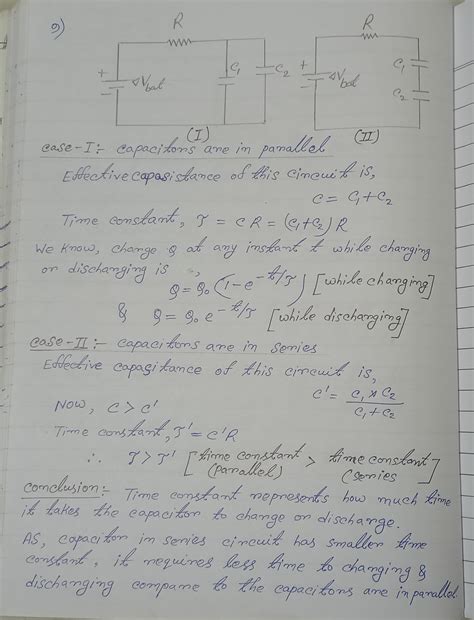 9)
R
+
-
ΔVbat
C1
C2
(I)
R
+
-
ΔVbat
C1
C2
(II)
case-I:- capacitors are in parallel
Effective capasistance of this circuit is,
C = C1+C2
Time constant, τ = CR = (C1+C2) R
We know, charge Q at any instant t while changing
or dischanging is,
Q = Q0 (1-e^-t/τ) [while changing]
& Q = Q0 e^-t/τ [while dischanging]
case-II:- capacitors are in series
Effective capasitance of this circuit is,
C' = C1 × C2 / C1 + C2
Now, C > C'
Time constant, τ' = C'R
∴ τ > τ' [time constant (parallel) > time constant (series]
conclusion:- Time constant represents how much time
it takes the capacitor to change or discharge.
AS, capacitor in series circuit has smaller time
constant, it requires less time to changing &
dischanging compare to the capacitors are in parallel